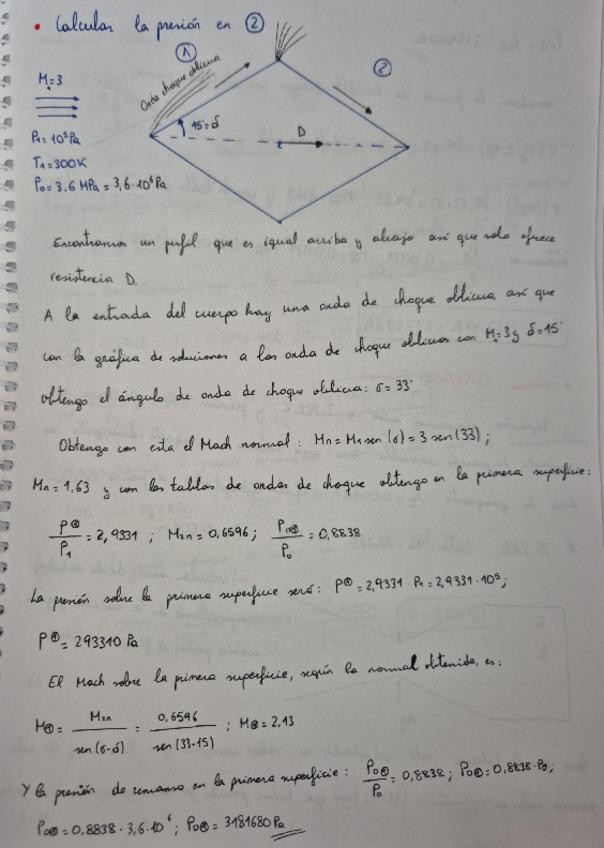 • Calcular la presión en ②
①
Onda choque oblicua
②
M₁=3
15°=δ
D
P₁= 10⁵Pa
T₁=300K
P₀= 3.6 MPa = 3,6·10⁶Pa
Encontramos un perfil que es igual arriba y abajo así que solo ofrece
resistencia D.
A la entrada del cuerpo hay una onda de choque oblicua así que
con la gráfica de soluciones a las onda de choque oblicuas con M₁=3 y δ=15°
obtengo el ángulo de onda de choque oblicua: σ=33°
Obtengo con esta el Mach normal: Mn = M₁ sen(σ) = 3 sen(33);
Mn = 1,63 y con las tablas de ondas de choque obtengo en la primera superficie:
P①/P₁ = 2,9331 ; M₂n = 0,6596; P₀①/P₀ = 0,8838
La presión sobre la primera superficie será: P① = 2,9331·P₁ = 2,9331·10⁵;
P① = 293310 Pa
El Mach sobre la primera superficie, según la normal obtenida, es:
M① = M₂n/sen(σ-δ) = 0,6596/sen(33-15) ; M① = 2.13
Y la presión de remanso en la primera superficie: P₀①/P₀ = 0,8838; P₀① = 0,8838·P₀;
P₀① = 0,8838·3,6·10⁶; P₀① = 3181680 Pa